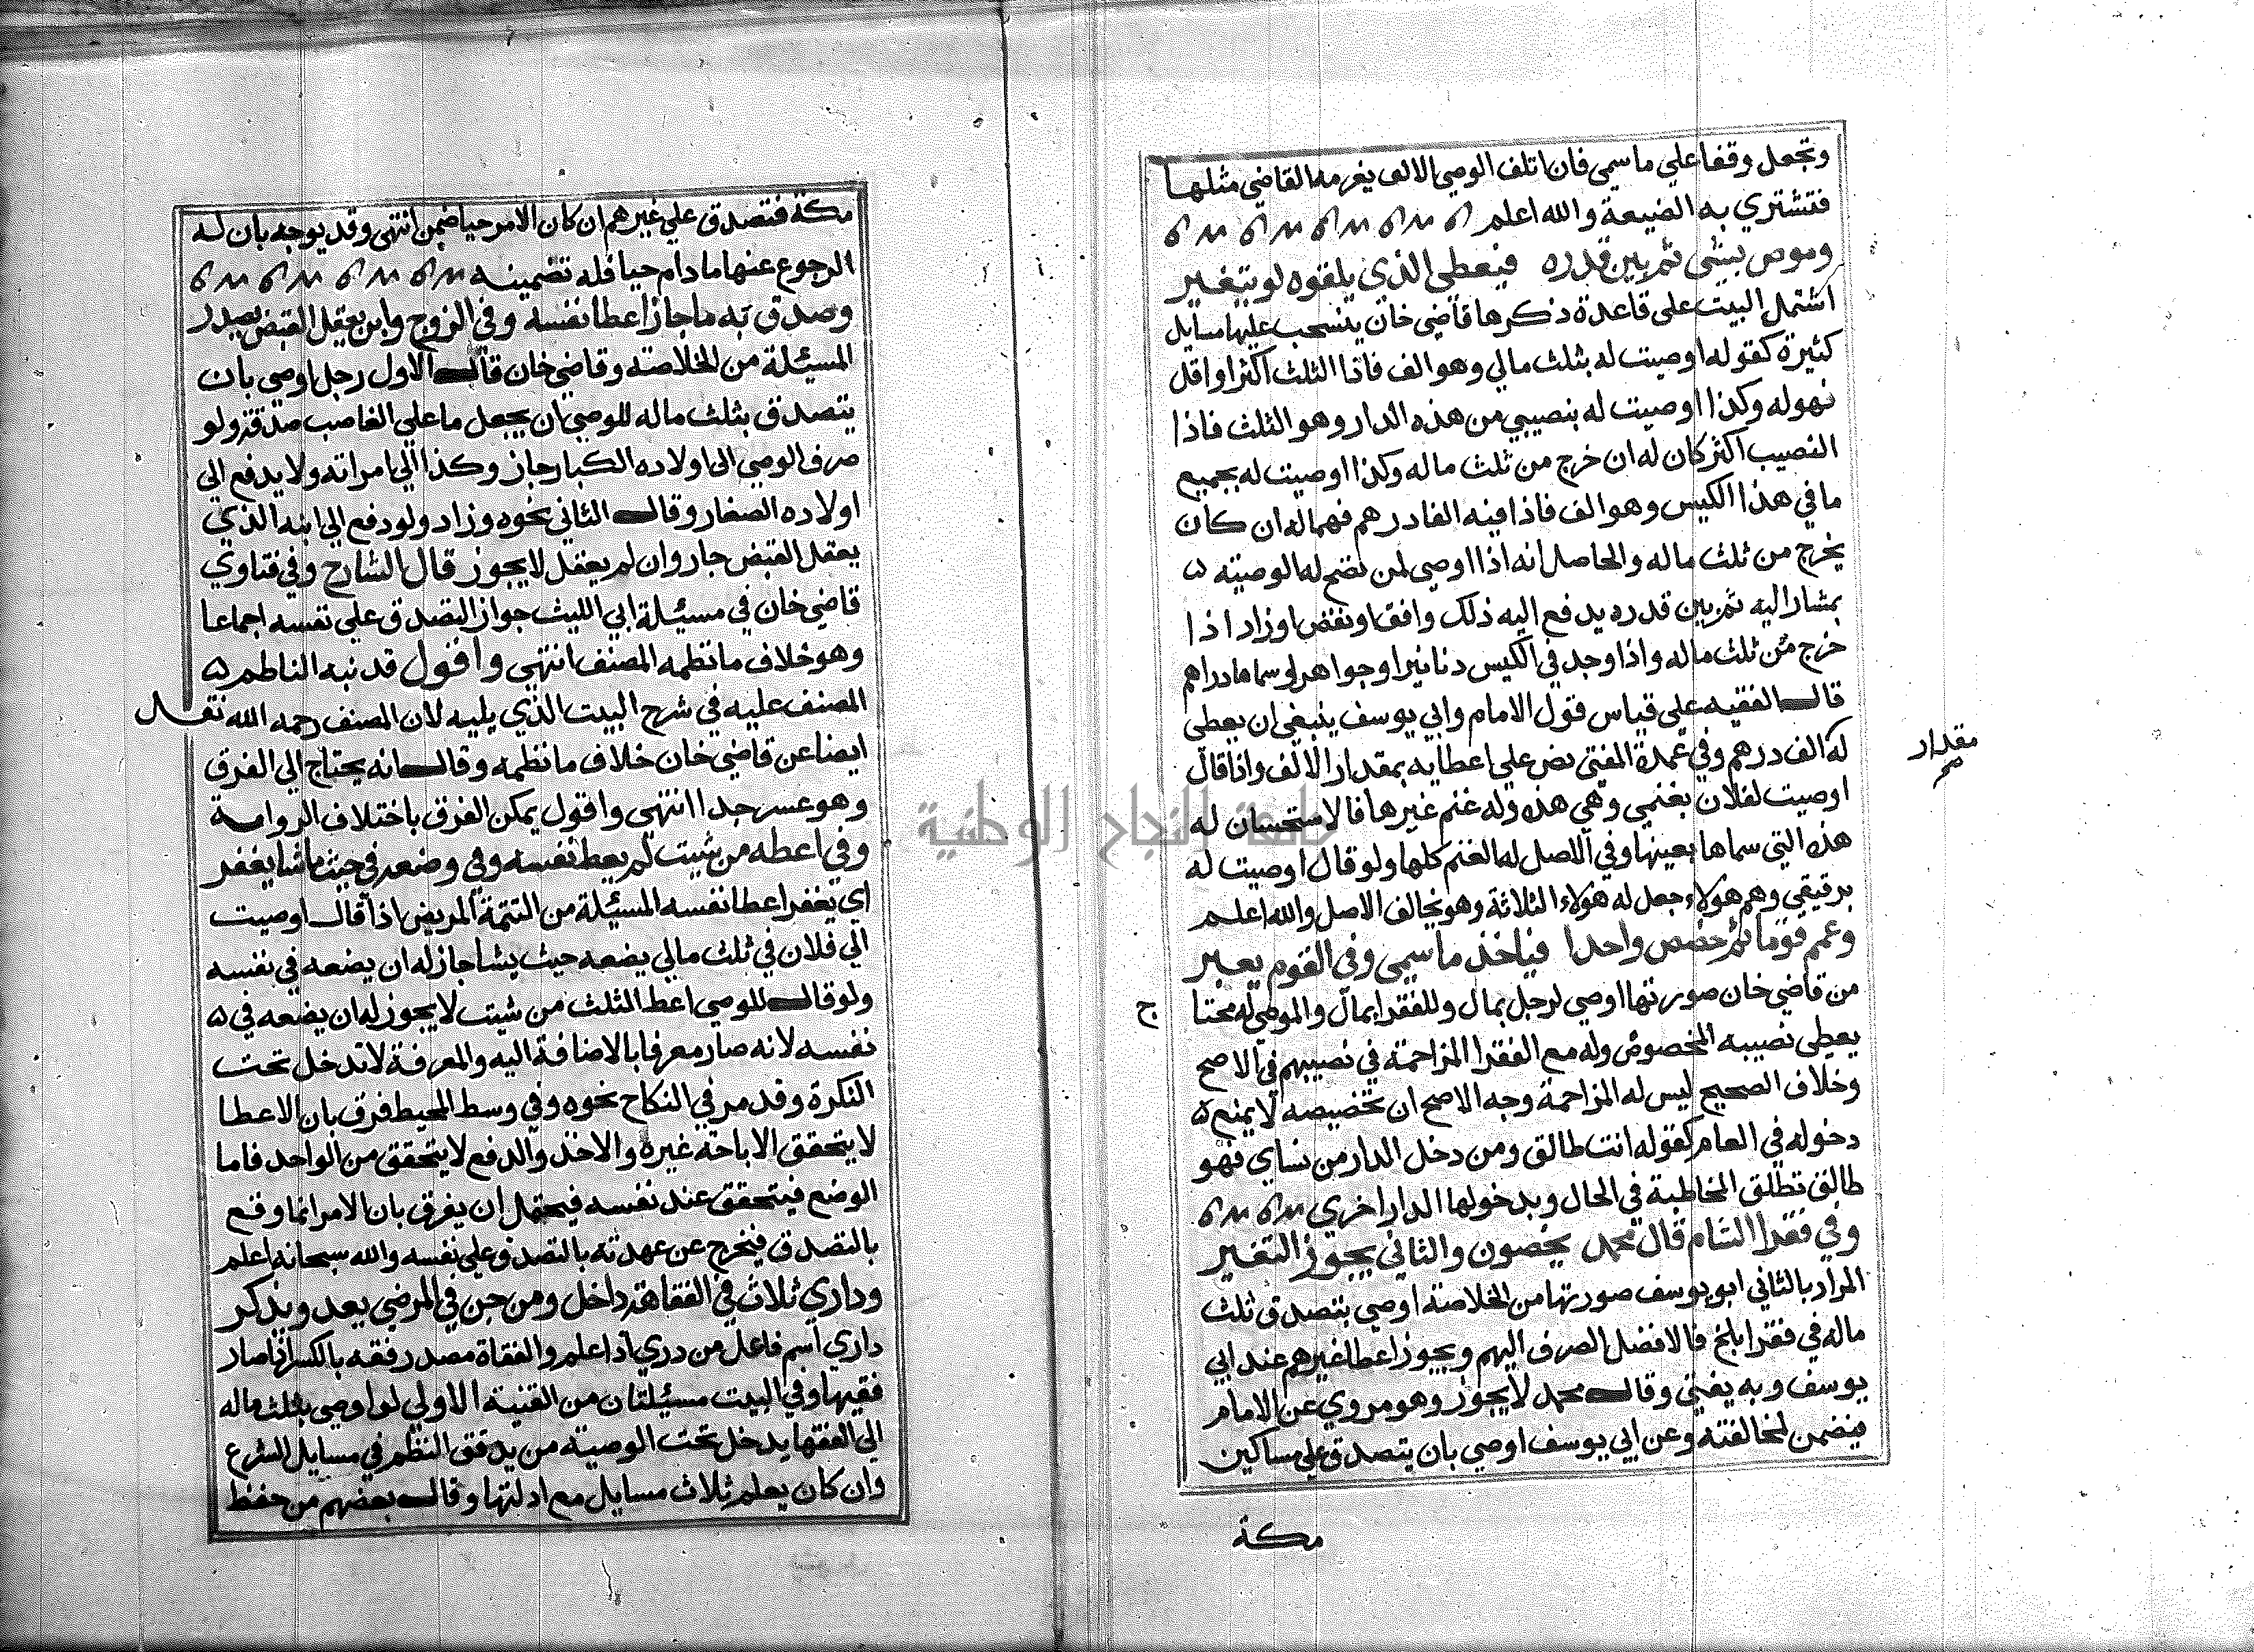 وتجعل وقفا علي ما سمي فان اتلف الوصي الالف يغرمه القاضي مثلها
فتشتري به الضيعة والله اعلم
وموص بشي ثم بين قدره فيعطي الذي يلقوه لو يتغير
اشتمل البيت علي قاعدة ذكرها قاضي خان ينسحب عليها مسايل
كثيرة كقوله اوصيت له بثلث مالي وهو الف فاذا الثلث اكثر او اقل
فهو له وكذا اوصيت له بنصيبي من هذه الدار وهو الثلث فاذا
النصيب اكثر كان له ان خرج من ثلث ماله وكذا اوصيت له بجميع
ما في هذا الكيس وهو الف فاذا فيه الفا درهم فهما له ان كان
يخرج من ثلث ماله والحاصل انه اذا اوصي لمن تصح له الوصية
بمشار اليه ثم بين قدره يدفع اليه ذلك وافق او نقص او زاد اذا
خرج من ثلث ماله واذا وجد في الكيس دنانير او جواهر لو سماها دراهم
قال الفقيه علي قياس قول الامام وابي يوسف ينبغي ان يعطي
له الف درهم وفي عمدة المفتي نص علي اعطايه بمقدار الالف واذا قال
مقدار
صح
اوصيت لفلان بغنمي وهي هذه وله غنم غيرها فالاستحسان له
هذه التي سماها بعينها وفي الاصل له الغنم كلها ولو قال اوصيت له
برقيقي وهم هولاء جعل له هولاء الثلاثة وهو يخالف الاصل والله اعلم
وعمم قوما ثم خصص واحدا فياخذ ما سمي وفي القوم يعبر
من قاضي خان صورتها اوصي لرجل بمال وللفقرا بمال والموصي له محتا
ج
يعطي نصيبه المخصوص وله مع الفقرا المزاحمة في نصيبهم في الاصح
وخلاف الصحيح ليس له المزاحمة وجه الاصح ان تخصيصه لا يمنع
دخوله في العام كقوله انت طالق ومن دخل الدار من نساي فهو
طالق تطلق المخاطبة في الحال وبدخولها الدار اخري
وفي فقرا الشام قال محمد يخصون والثاني يجوز التغير
المراد بالثاني ابو يوسف صورتها من الخلاصة اوصي بتصدق ثلث
ماله في فقرا بلخ فالافضل الصرف اليهم ويجوز اعطا غيرهم عند ابي
يوسف وبه يفتي وقال محمد لا يجوز وهو مروي عن الامام
فيضمن لمخالفته وعن ابي يوسف اوصي بان يتصدق علي مساكين
مكة
مكة فتصدق علي غيرهم ان كان الامر حيا ضمن انتهي وقد يوجه بان له
الرجوع عنها ما دام حيا فله تضمينه
وصدق به ما جاز اعطا نفسه وفي الزوج وابن يعقل القبض يصدر
المسيلة من الخلاصة وقاضي خان قال الاول رجل اوصي بان
يتصدق بثلث ماله للوصي ان يجعل ما علي الغاصب صدقة ولو
صرف الوصي الي اولاده الكبار جاز وكذا الي امراته ولا يدفع الي
اولاده الصغار وقال الثاني نحوه وزاد ولو دفع الي ابنه الذي
يعقل القبض جاز وان لم يعقل لا يجوز قال الشارح وفي فتاوي
قاضي خان في مسيلة ابي الليث جواز التصدق علي نفسه اجماعا
وهو خلاف ما نظمه المصنف انتهي واقول قد نبه الناظم
المصنف عليه في شرح البيت الذي يليه لان المصنف رحمه الله نقل
ايضا عن قاضي خان خلاف ما نظمه وقال انه يحتاج الي الفرق
وهو عسر جدا انتهي واقول يمكن الفرق باختلاف الرواية
وفي اعطه من شيت لم يعط نفسه وفي وضعه في حيث ما شا يغفر
اي يغفر اعطا نفسه المسيلة من التتمة المريض اذا قال اوصيت
الي فلان في ثلث مالي يضعه حيث يشا جاز له ان يضعه في نفسه
ولو قال للوصي اعط الثلث من شيت لا يجوز له ان يضعه في
نفسه لانه صار معرفا بالاضافة اليه والمعرفة لا تدخل تحت
النكرة وقد مر في النكاح نحوه وفي وسط المحيط فرق بان الاعطا
لا يتحقق الا باحة غيره والاخذ والدفع لا يتحقق من الواحد فاما
الوضع فيتحقق عند نفسه فيحتمل ان يفرق بان الامر انما وقع
بالتصدق فيخرج عن عهدته بالتصدق علي نفسه والله سبحانه اعلم
وداري ثلاث في الفقاهة داخل ومن جن في المرضي يعد ويذكر
داري اسم فاعل من دري اذا علم والفقاة مصدر فقه بالكسر اذا صار
فقيها وفي البيت مسيلتان من القنية الاولي لو اوصي بثلث ماله
الي الفقها يدخل تحت الوصية من يدقق النظر في مسايل الشرع
وان كان يعلم ثلاث مسايل مع ادلتها وقال بعضهم من حفظ
جامعة النجاح الوطنية